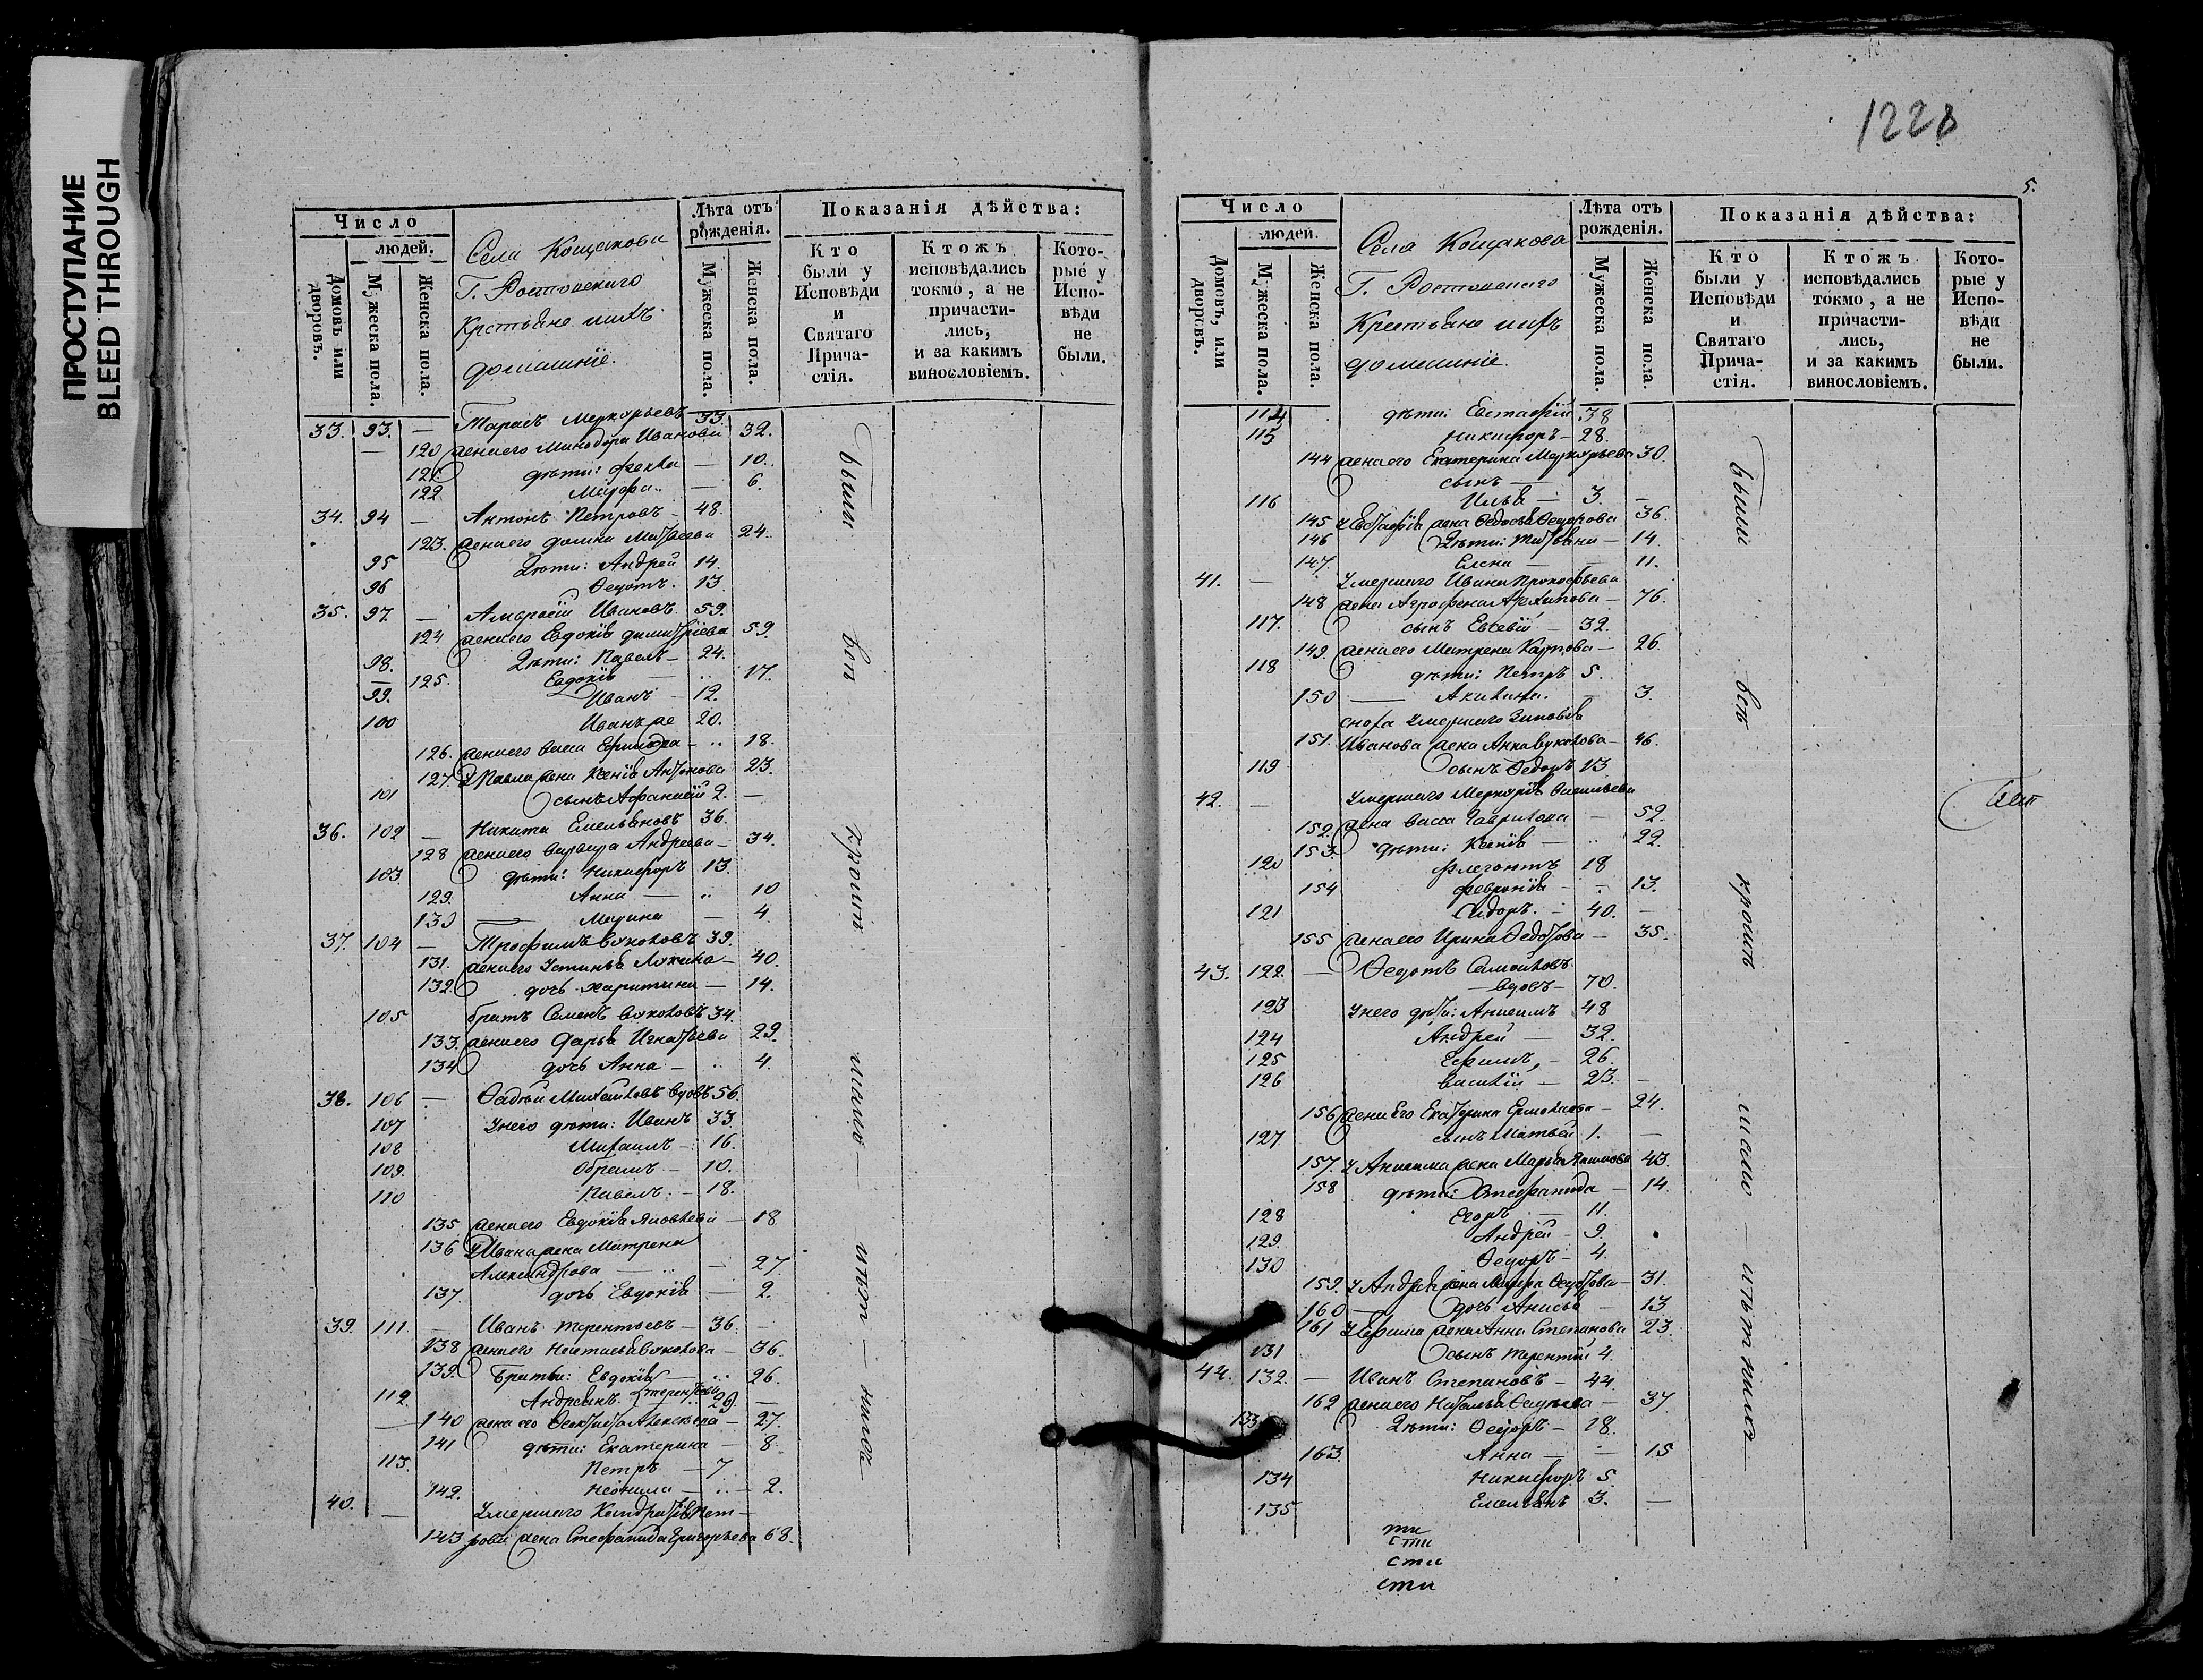 ПРОСТУПАНИЕ
BLEED THROUGH
Число
людей.
Домовъ или дворовъ.
Мужеска пола.
Женска пола.
Села Кощакова
Г. Ростовскаго
Крстьяне и ихъ
домашніе.
Лѣта отъ рожденія.
Мужеска пола.
Женска пола.
Показанія дѣйства:
Кто были у Исповѣди и Святаго Прича-стія.
Ктожъ исповѣдались токмо, а не причасти-лись, и за какимъ винословіемъ.
Кото-рые у Испо-вѣди не были.
33. 93. — Тарасъ Меркурьевъ 33.
120 жена его Минодора Иванова 32.
121 дѣти: Фекла — 10.
122 Марфа — 6.
34. 94 — Антонъ Петровъ 48.
123. жена его Матвеева 24.
95 Дѣти: Андрей 14.
96 Ѳедотъ. 13.
35. 97. — Ивановъ 59.
124 жена его Евдокія Димитріева 59.
98. Дѣти: Павелъ — 24.
125. Евдокія — 17.
99. Иванъ — 12.
100 Иванъ же 20.
126. жена его Васса — 18.
127. У Павла жена Ксенія Антонова 23.
101 сынъ Афанасій 2. —
36. 102 — Никита Емельяновъ 36.
128 жена его Варвара Андреева — 34.
103. дѣти: Никифоръ 13.
129. Анна — 10
130 Марина — 4.
37. 104 — Трофимъ Вуколовъ 39.
131. жена его Устинья Лукина — 40.
132. дочь Харитина — 14.
105 братъ Семенъ Вуколовъ 34.
133. жена его Дарья Игнатьева 29.
134 дочь Анна — 4.
38. 106 — Фадѣй Михайловъ вдовъ 56.
107 У него дѣти: Иванъ 33.
108 Михаилъ — 16.
109. — 10.
110 Павелъ. — 18.
135 жена его Евдокія Яковлева — 18
136 У Ивана жена Матрена
Александрова — 27.
137. дочь Евдокія — 2.
39. 111. — Иванъ Терентьевъ — 36. —
138 жена его Настасья Вуколова — 36.
139. Братья: Евдокія — 26.
112. Андреянъ Терентьевы 29. —
140 жена его Алексѣева — 27.
141 дѣти: Екатерина — 8.
113. Петръ — 7
142. Неонила — 2.
40. — Умершаго Кондратія Пет—
143 рова жена Стефанида Григорьева 68.
были
всѣ
кромѣ
мало
лѣтнихъ
1228
5.
Число
людей.
Домовъ, или дворовъ.
Мужеска пола.
Женска пола.
Села Кощакова
Г. Ростовскаго
Крестьяне и ихъ
домашніе.
Лѣта отъ рожденія.
Мужеска пола.
Женска пола.
Показанія дѣйства:
Кто были у Исповѣди и Святаго Прича-стія.
Ктожъ исповѣдались токмо, а не причасти-лись, и за какимъ винословіемъ.
Кото-рые у Испо-вѣди не были.
114 дѣти: Евстафій 38
115 Никифоръ — 28.
144 жена его Екатерина Меркурьева 30.
сынъ —
116 Илья — 3. —
145 У Евстафія жена Федосья Ѳедорова 36.
146 Дѣти: Татьяна — 14.
147. Елена — 11.
41. — Умершаго Ивана Прокофьева
148 жена Агрофена Архипова — 76.
117. сынъ Евсевій — 32.
149. жена его Матрена Карпова — 26.
118 дѣти: Петръ 5.
150 — Акилина. — 3.
сноха умершаго Зиновья
151. Иванова жена Анна Вуколова — 46.
119 сынъ Ѳедоръ 13.
42. — Умершаго Меркурія Васильева
152. жена Васса Гаврилова — 52.
153. дѣти: Ксенія — 22.
120 Флегонтъ 18
154 Февронія — 13.
121 Сидоръ. — 40. —
155 жена его Ирина Федотова — 35.
43. 122. — Ѳедотъ Самойловъ
вдовъ — 70.
123 У него дѣти: Анисимъ 48
124 Андрей — 32.
125 Ефимъ, — 26.
126 Василій — 23. —
156 жена его Екатерина Ермолаева — 24.
127 сынъ Матвей 1. —
157. У Анисима жена Марья Якимова 43.
158 дѣти: Стефанида — 14.
128 Егоръ — 11.
129. Андрей — 9.
130 Ѳедоръ — 4.
159. У Андрея жена Ѳедотова — 31.
160 — дочь Анисья — 13
161 У Ефима жена Анна Степанова 23.
131 сынъ Терентій 4.
44. 132. — Иванъ Степановъ — 44.
162 жена его Наталья — 37.
133 Дѣти: Ѳедоръ — 18.
163. Анна — 15
134 Никифоръ 5.
135 Емельянъ 3. —
ти
сти
сти
сти
были
всѣ
кромѣ
мало — лѣтнихъ